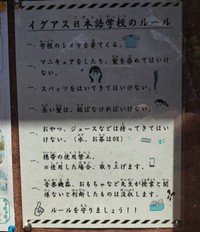 イグアス日本語学校のルール
一、学校のシャツを着てくる。
一、マニキュアをしたり、髪を染めてはいけない。
一、スパッツをはいてきてはいけない。
一、長い髪は、結ばなければいけない。
一、おやつ、ジュースなどは持ってきてはいけない。(水、お茶はOK)
一、携帯の使用禁止。
※使用した場合、取り上げます。
一、音楽機器、おもちゃなど先生が授業と関係ないと判断したものは没収します。
ルールを守りましょう!!